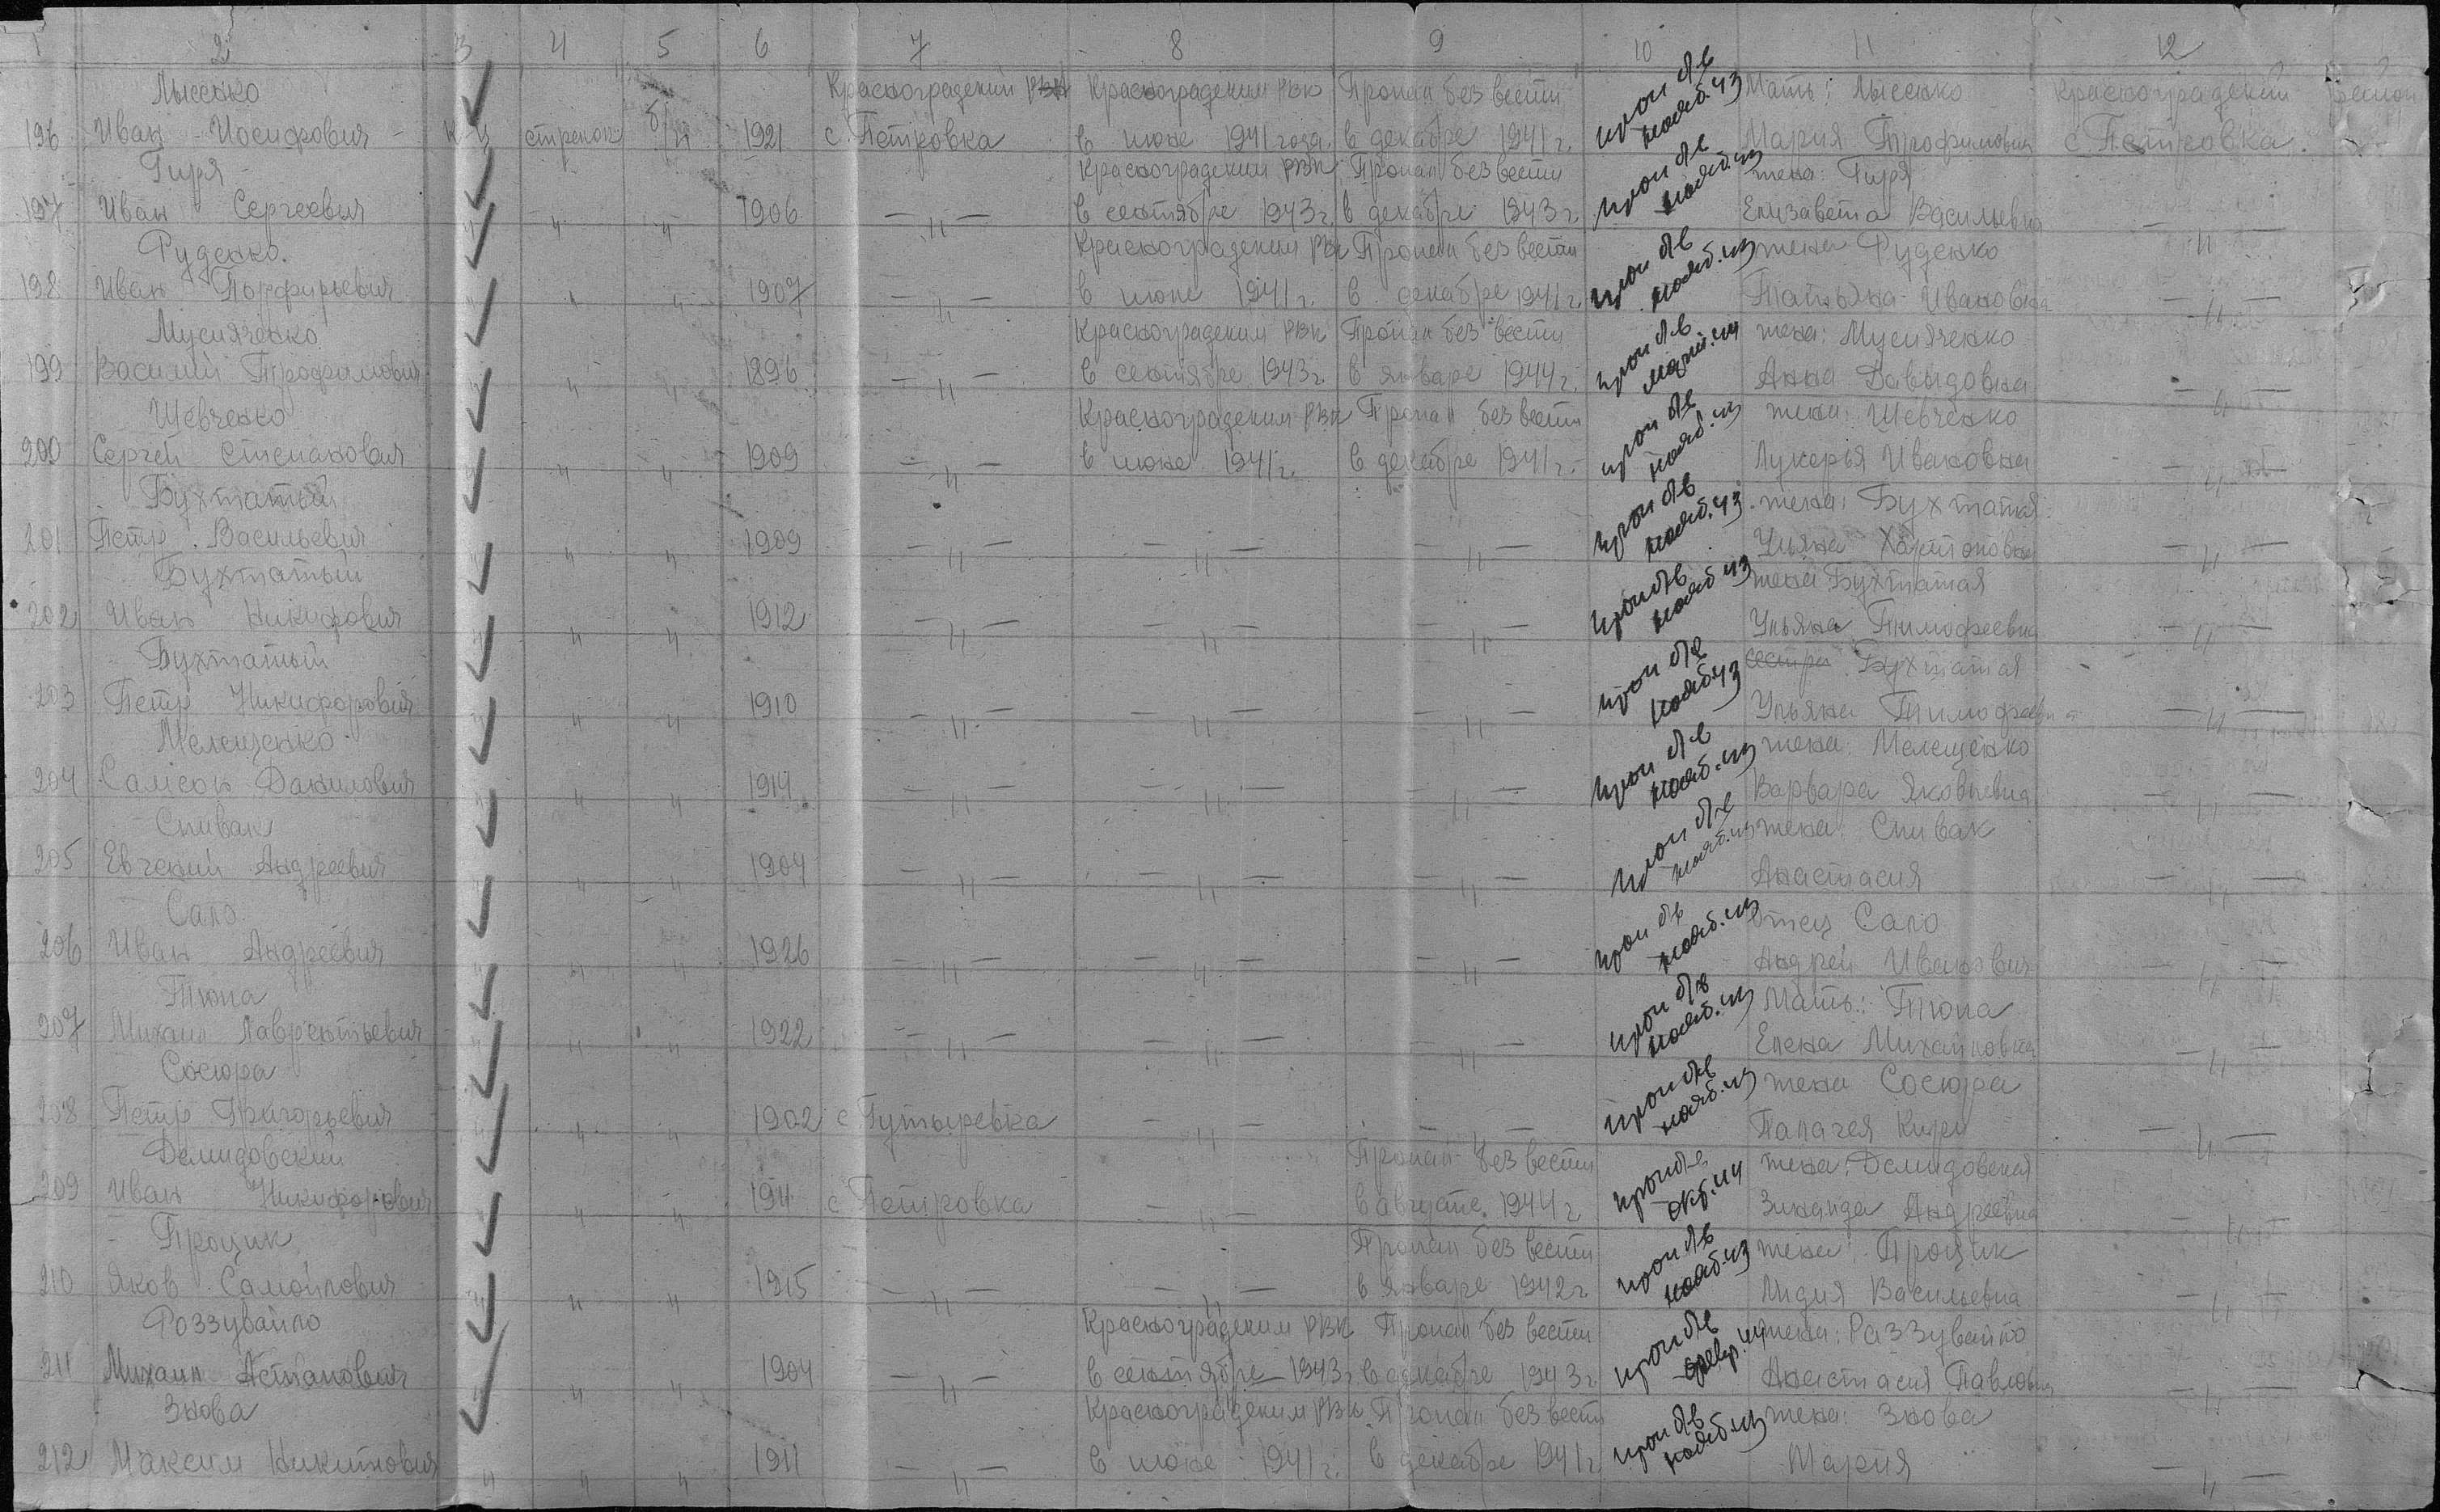 1 2 3 4 5 6 7 8 9 10 11 12
Лысенко Красноградский РВК Красноградским РВК Пропал без вести проп б/в Мать: Лысенко Красноградский район
196 Иван Иосифович кр-ц стрелок б/п 1921 с. Петровка в июне 1941 года в декабре 1941 г. нояб. 43 Мария Трофимовна с. Петровка.
Гиря Красноградским РВК Пропал без вести проп б/в жена: Гиря
197 Иван Сергеевич " " " 1906 — " — в сентябре 1943 г. в декабре 1943 г. нояб. 43 Елизавета Васильевна — " —
Руденко. Красноградским РВК Пропал без вести проп б/в жена Руденко
198 Иван Порфирьевич " " " 1907 — " — в июне 1941 г. в декабре 1941 г. нояб. 43 Татьяна Ивановна — " —
Мусияченко Красноградским РВК Пропал без вести проп б/в жена: Мусияченко
199 Василий Трофимович " " " 1896 — " — в сентябре 1943 г. в январе 1944 г. 44 Анна Давидовна — " —
Шевченко Красноградским РВК Пропал без вести проп б/в жена: Шевченко
200 Сергей Степанович " " " 1909 — " — в июне 1941 г. в декабре 1941 г. нояб. 43 Лукерья Ивановна — " —
Бухтатый проп б/в жена: Бухтатая
201 Петр Васильевич " " " 1909 — " — — " — — " — нояб. 43 Ульяна Харитоновна — " —
Бухтатый проп б/в жена Бухтатая
202 Иван Никифрович " " " 1912 — " — — " — — " — нояб 43 Ульяна Тимофеевна — " —
Бухтатый проп б/в сестра Бухтатая
203 Петр Никифорович " " " 1910 — " — — " — — " — нояб 43 Ульяна Тимофеевна — " —
Мелещенко проп б/в жена: Мелещенко
204 Самсон Данилович " " " 1914 — " — — " — — " — нояб. 43 Варвара Яковлевна — " —
Спивак проп б/в жена: Спивак
205 Евгений Андреевич " " " 1904 — " — — " — — " — нояб. 43 Анастасия — " —
Сало проп б/в отец Сало
206 Иван Андреевич " " " 1926 — " — — " — — " — нояб. 43 Андрей Иванович — " —
Тюпа проп б/в Мать: Тюпа
207 Михаил Лаврентьевич " " " 1922 — " — — " — — " — нояб. 43 Елена Михайловна — " —
Сосюра проп б/в жена Сосюра
208 Петр Григорьевич " " " 1902 с Гутыревка — " — — " — нояб. 43 Палагея — " —
Демидовский Пропал без вести проп б/в жена: Демидовская
209 Иван Никифорович " " " 1911 с Петровка — " — в августе 1944 г. окт. 44 Зинаида Андреевна — " —
Процик Пропал без вести проп б/в жена: Процик
210 Яков Самойлович " " " 1915 — " — — " — в январе 1942 г нояб. 43 Лидия Васильевна — " —
Роззувайло Красноградским РВК Пропал без вести проп б/в жена: Раззувайло
211 Михаил Астапович " " " 1904 — " — в сентябре 1943 г. в декабре 1943 г. февр. 44 Анастасия Павловна — " —
Знова Красноградским РВК Пропал без вести проп б/в жена: Знова
212 Максим Никитович " " " 1911 — " — в июне 1941 г. в декабре 1941 г. нояб 43 Мария — " —